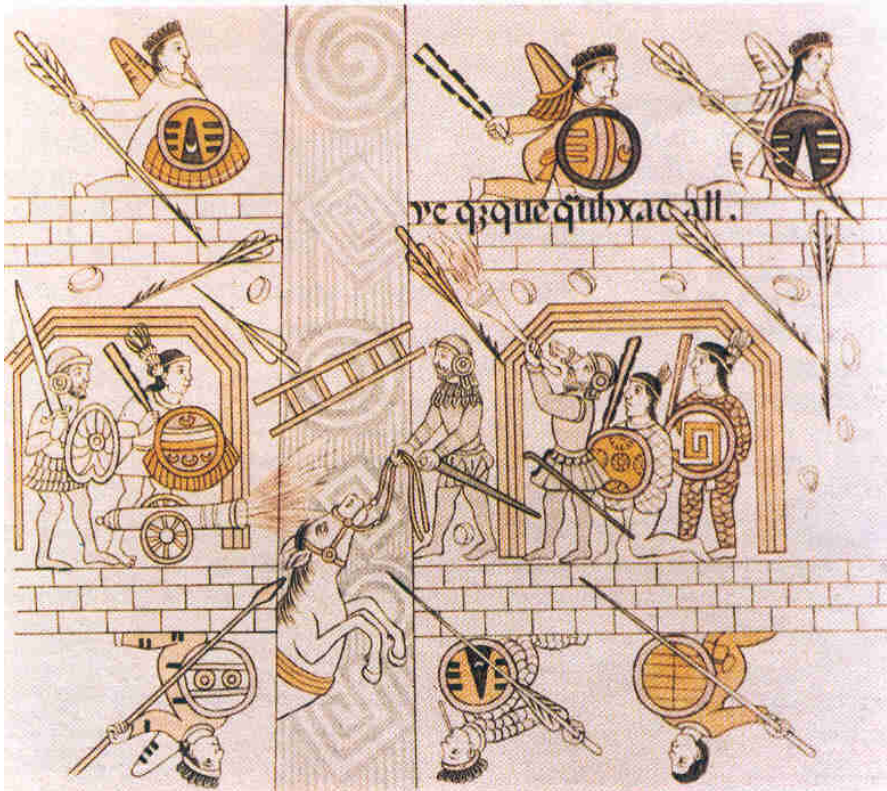 yc qzque q̃uhxacall.